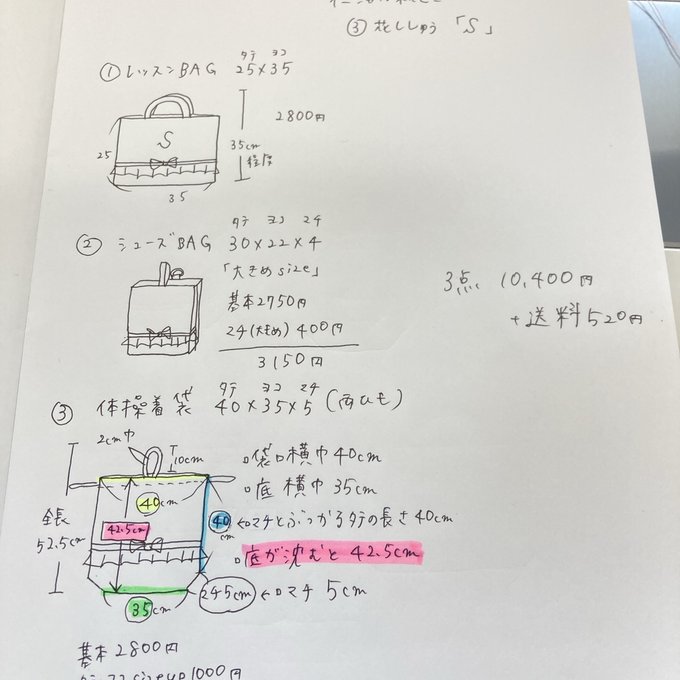 ③ 花ししゅう 「S」
タテ ヨコ
① レッスンBAG 25×35
2800円
S
25
35cm
程度
35
タテ ヨコ マチ
② シューズBAG 30×22×4
「大きめsize」
基本2750円
マチ(大きめ) 400円
3150円
3点 10,400円
+送料520円
タテ ヨコ マチ
③ 体操着袋 40×35×5 (両ひも)
2cm巾
10cm
全長
52.5cm
40cm
42.5cm
40
cm
35cm
マチ5cm
□袋口横巾40cm
□底 横巾 35cm
←□マチとぶつかるタテの長さ40cm
□底が沈むと 42.5cm
←□マチ 5cm
基本2800円
sizeup1000円